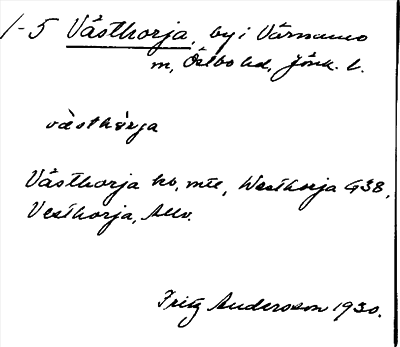 1-5 Västhorja, by i Värnamo
m, Östbo hd, Jönk. l.
västhärja
Västhorja kb, mte, Westhorja G38,
Vesthorja, Allv.
Fritz Andersson 1930.